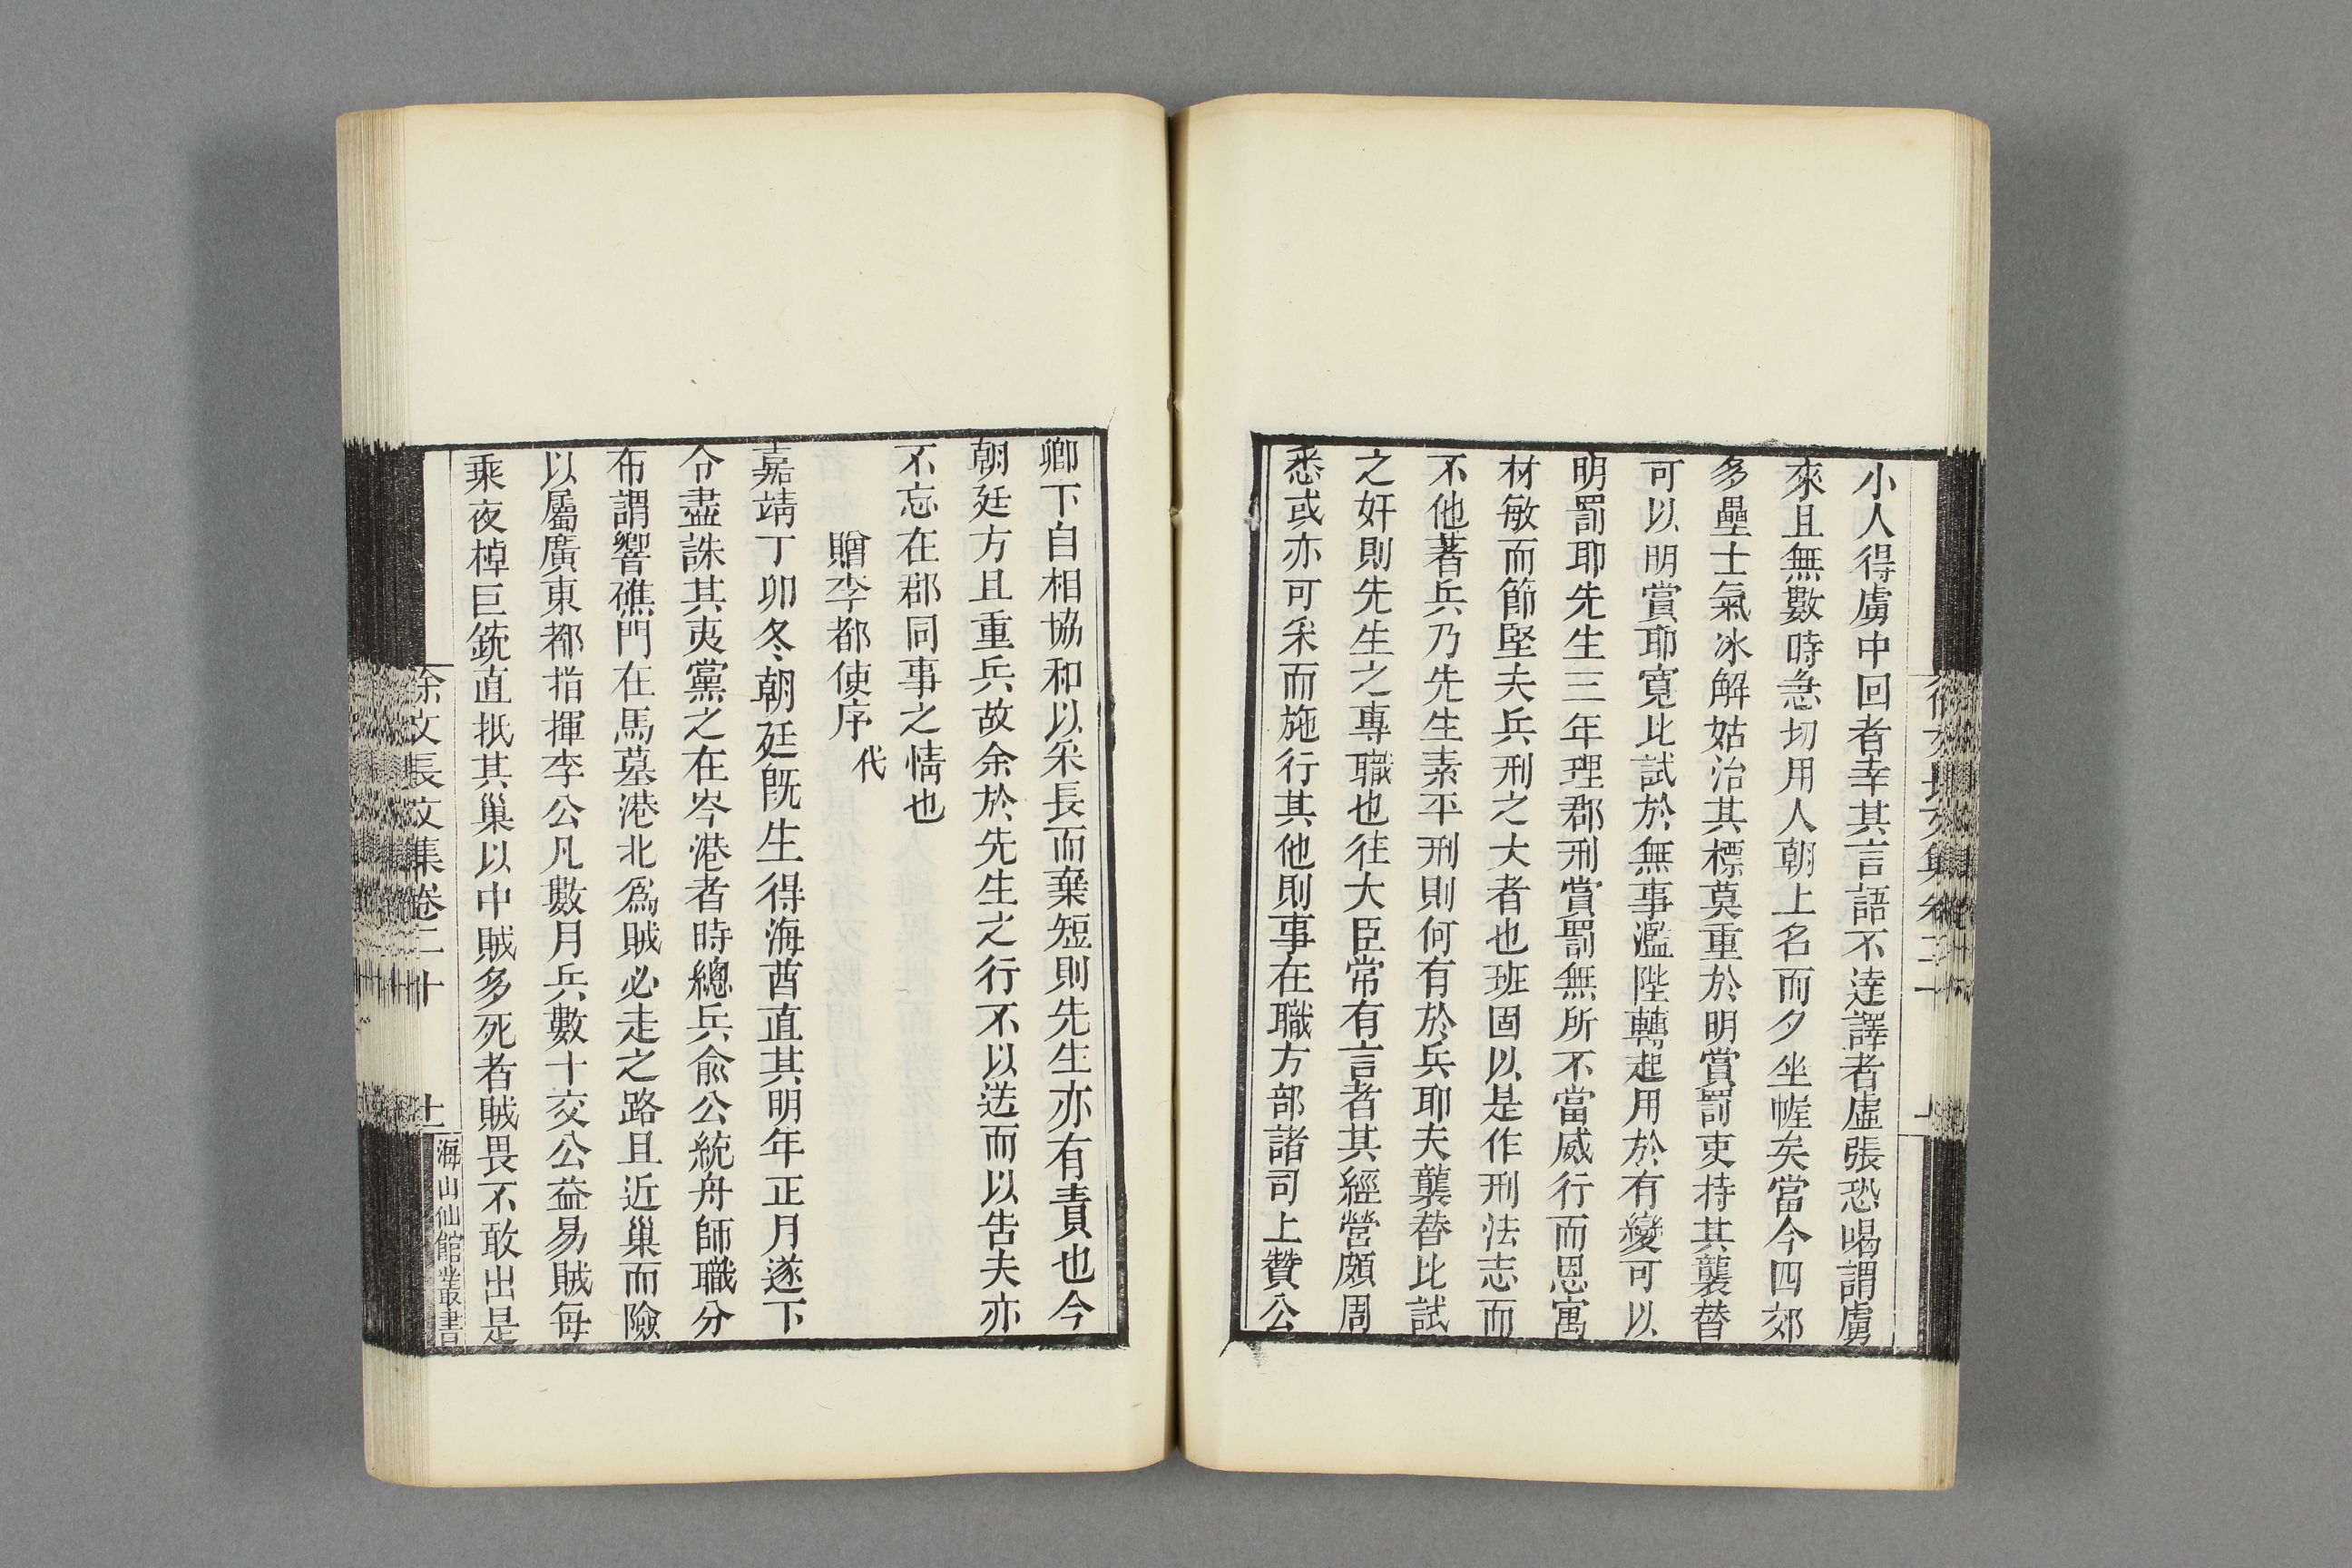 小人得虜中回者幸其言語不達譯者虛張恐喝謂虜
來且無數時急切用人朝上名而夕坐幄矣當今四郊
多壘士氣冰解姑治其標莫重於明賞罰吏持其襲替
可以明賞耶寬比試於無事濫陞轉起用於有變可以
明罰耶先生三年理郡刑賞罰無所不當威行而恩寓
材敏而節堅夫兵刑之大者也班固以是作刑法志而
不他著兵乃先生素平刑則何有於兵耶夫襲替比試
之奸則先生之專職也往大臣常有言者其經營頗周
悉或亦可采而施行其他則事在職方部諸司上贊公
卿下自相協和以采長而棄短則先生亦有責也今
朝廷方且重兵故余於先生之行不以送而以告夫亦
不忘在郡同事之情也
贈李都使序 代
嘉靖丁卯冬朝廷既生得海酋直其明年正月遂下
令盡誅其夷黨之在岑港者時總兵俞公統舟師職分
布謂響礁門在馬墓港北為賊必走之路且近巢而險
以屬廣東都指揮李公凡數月兵數十交公益易賊每
乘夜棹巨銃直抵其巢以中賊多死者賊畏不敢出是
徐文長文集卷二十
十一
海山仙館叢書